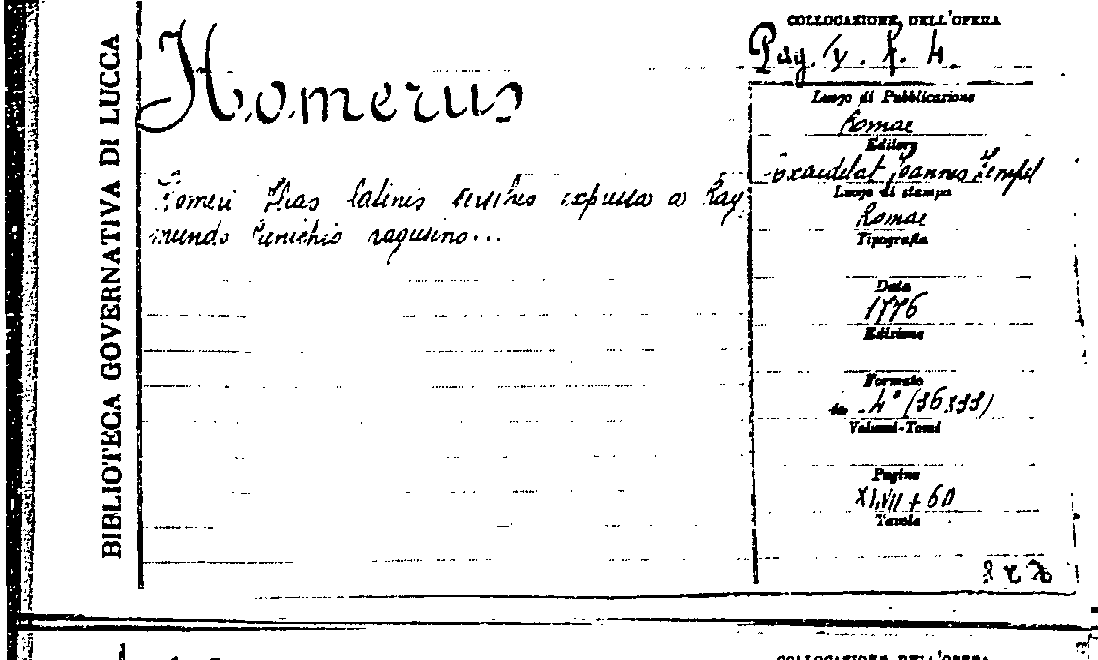 BIBLIOTECA GOVERNATIVA DI LUCCA
Homerus
Homeri Ilias latinis versibus expressa a Ray
mundo Cunichio ragusino...
COLLOCAZIONE DELL'OPERA
Pag. 4.
Luogo di Pubblicazione
Romae
Editore
Excudebat Joannes Zempel
Luogo di stampa
Romae
Tipografia
Data
1776
Edizione
Formato
in 4°
Volumi-Tomi
Pagine
XLVII + 60
Tavole
COLLOCAZIONE DELL'OPERA